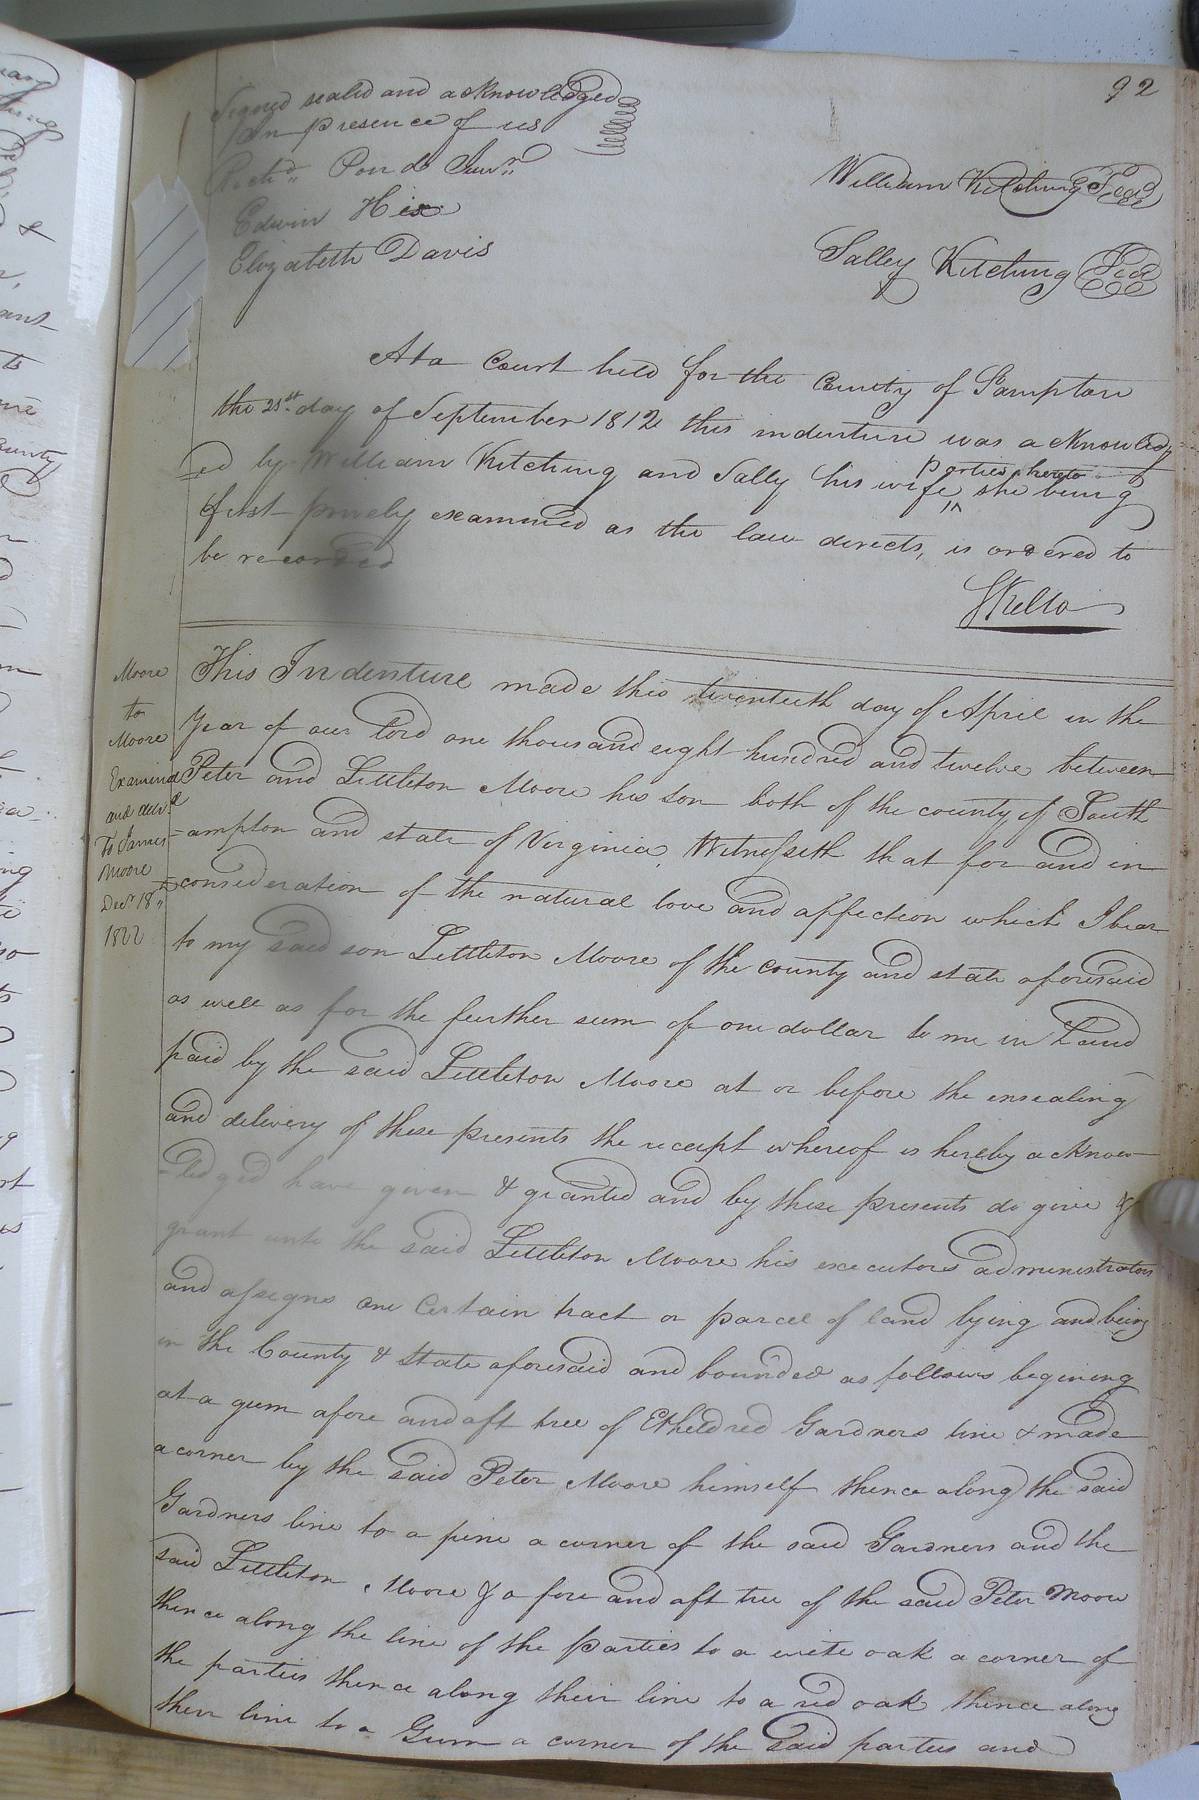 92
Signed sealed and acknowledged
In presence of us
Richd. Pond Junr.
Edwin Hix
Elizabeth Davis
William Kitching Seal
Salley Kitching Seal
At a Court held for the County of Sampton
the 21st. day of September 1812 this indenture was acknowledg
ed by William Kitching and Sally his wife parties hereto she being
first prively examined as the law directs, is ordered to
be recorded
SKello
Moore
to
Moore
Examined
and delivd
To James
Moore
Decr. 18th
1822
This Indenture made this twentieth day of April in the
Year of our lord one thousand eight hundred and twelve between
Peter and Littleton Moore his son both of the county of South
=ampton and state of Virginia, Witnesseth that for and in
consideration of the natural love and affection which I bear
to my said son Littleton Moore of the county and state aforesaid
as well as for the further sum of one dollar to me in hand
paid by the said Littleton Moore at or before the ensealing
and delivery of these presents the receipt whereof is hereby acknow
=ledged have given & granted and by these presents do give &
grant unto the said Littleton Moore his executors administrators
and assigns one certain tract or parcel of land lying and being
in the County & state aforesaid and bounded as follows begining
at a gum afore and aft tree of Etheldred Gardners line & made
a corner by the said Peter Moore himself thence along the said
Gardners line to a pine a corner of the said Gardners and the
said Littleton Moore & a fore and aft tree of the said Peter Moore
thence along the line of the parties to a wite oak a corner of
the parties thence along their line to a red oak thence along
their line to a Gum a corner of the said parties and